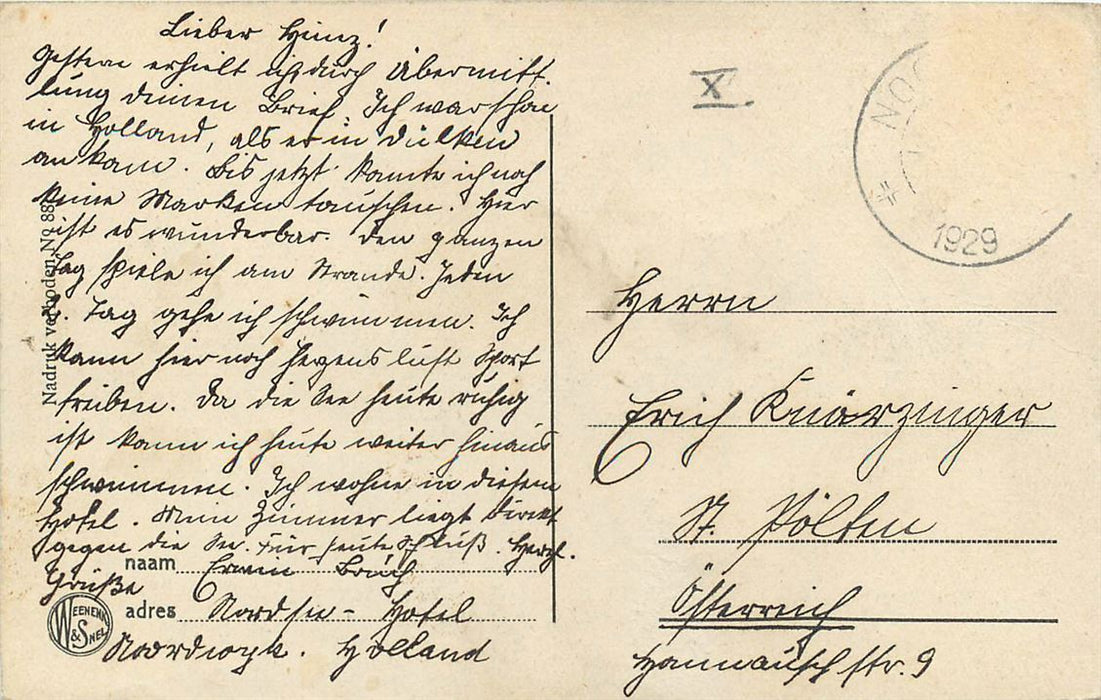 Lieber Heinz!
Gestern erhielt ich durch Übermitt-
lung deinen Brief. Ich war schon
in Holland, als er in Dülken
ankam. Bis jetzt konnte ich noch
keine Marken tauschen. Hier
ist es wunderbar. Den ganzen
Tag spiele ich am Strande. Jeden
Tag gehe ich schwimmen. Ich
kann hier noch Herzens lust Sport
treiben. Da die See heute ruhig
ist kann ich heute weiter hinaus
schwimmen. Ich wohne in diesem
Hotel. Mein Zimmer liegt direkt
gegen die See. Für heute Schluß. Herzl.
Grüße
naam Erwin
adres Nordsee-Hotel
Noordwyk. Holland
Nadruk verboden No 88
WEENENK & SNEL
X
NOO
1929
Herrn
Erich Knärzinger
St. Pölten
Österreich